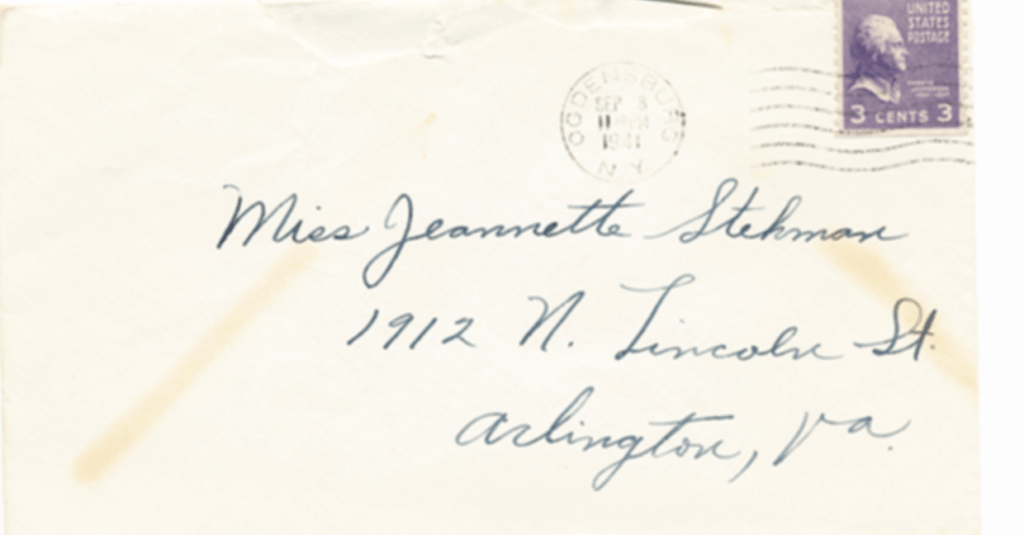 UNITED
STATES
POSTAGE
3 CENTS 3
OGDENSBURG
SEP 8
11 PM
1941
N.Y.
Miss Jeannette Stehman
1912 N. Lincoln St.
Arlington, Va.